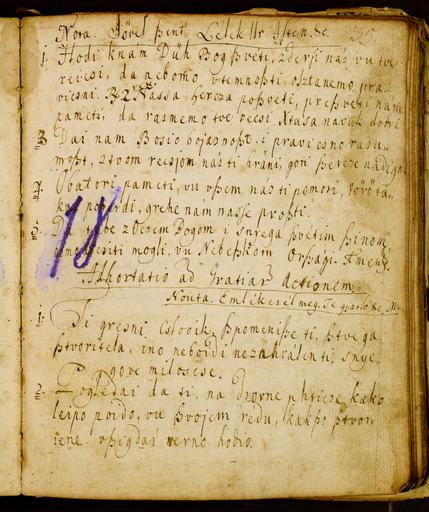 Nota. Jövel szent Lelek Ur Isten. &c.
1. Hodi knám Düh Bog szveti, zdersi nász vu tve
reicsi, da nebomo vtemnoszti, osztanemo pra,,
vicsni. 2. Nassa hercza poszveti, preszveti nám
pameti, da razmemo tve recsi, Xtusa navuk dobri
3. Dai nam Bosio bojaznoszt, i pravicsno razu,,
moszt, ztvom recsjom nasz ti hráni, gori szercze nádigni
4. Obatri pameti, vu vszem nasz ti pomori,
grehe nám nasse proszti.
5. Da tebe zOczem Bogom i znyega szvetim szinom
mogli, vu Nebeszkom Orszagi. Amen.
18
Adhortatio ad Gratiar. Actionem
Nouta. Emlékezzél meg, Te &c.
1. Ti gresni Cslovik, szpomeniszе ti, sztvega
sztvoritela, ino neboidi nezahválen ti, z nye,,
gove miloscse.
2. Pogledai da ti, na drovne phticze kako
leipo poido, vu szvojem redu, kakszo sztvor,,
jene. vszigdár verno hodio.